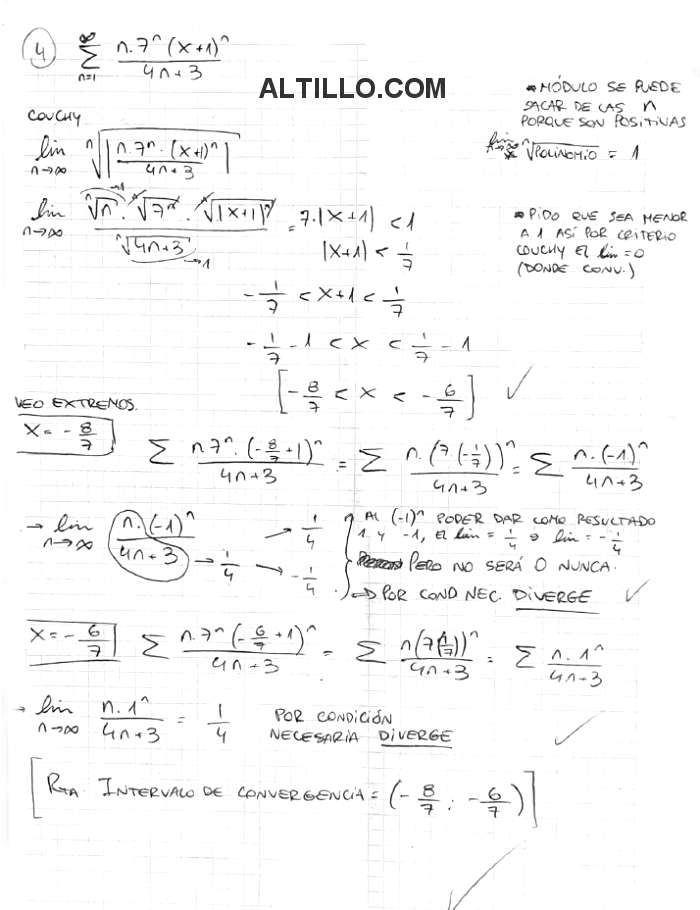 4) ∑ n=1 ∞ n.7^n (x+1)^n / 4n+3
ALTILLO.COM
* MÓDULO SE PUEDE
SACAR DE LAS n
PORQUE SON POSITIVAS
* lim n→∞ ⁿ√POLINOMIO = 1
COUCHY
lim n→∞ ⁿ√|n.7^n.(x+1)^n / 4n+3|
lim n→∞ ⁿ√n . ⁿ√7^n . ⁿ√|x+1|^n / ⁿ√4n+3 = 7.|x+1| < 1
→1
→1
* PIDO QUE SEA MENOR
A 1 ASÍ POR CRITERIO
COUCHY EL lim = 0
(DONDE CONV.)
|x+1| < 1/7
-1/7 < x+1 < 1/7
-1/7 - 1 < x < 1/7 - 1
[-8/7 < x < -6/7] ✓
VEO EXTREMOS.
x = -8/7 ∑ n.7^n.(-8/7+1)^n / 4n+3 = ∑ n.(7.(-1/7))^n / 4n+3 = ∑ n.(-1)^n / 4n+3
→ lim n→∞ n.(-1)^n / 4n+3 → 1/4 → 1/4 → -1/4
AL (-1)^n PODER DAR COMO RESULTADO
1 y -1, EL lim = 1/4 o lim = -1/4
PERO NO SERÁ 0 NUNCA.
→ POR COND NEC. DIVERGE ✓
x = -6/7 ∑ n.7^n(-6/7+1)^n / 4n+3 = ∑ n(7(1/7))^n / 4n+3 = ∑ n.1^n / 4n+3
→ lim n→∞ n.1^n / 4n+3 = 1/4 POR CONDICIÓN
NECESARIA DIVERGE ✓
[RTA INTERVALO DE CONVERGENCIA = (-8/7 ; -6/7)]
✓